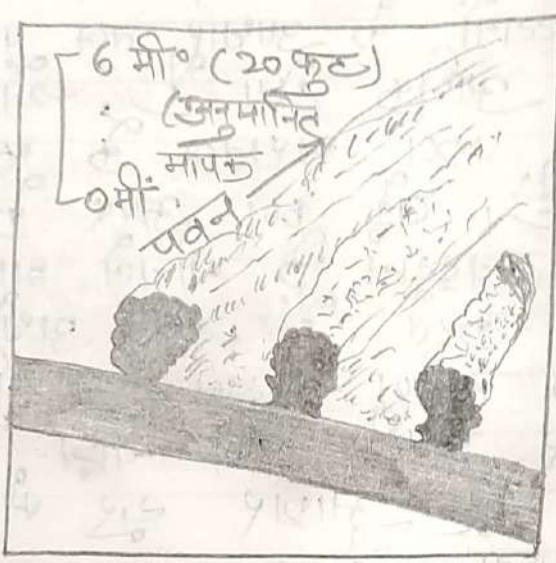 6 मी० (20 फुट)
(अनुमानित
मापक
0 मीं
पवन